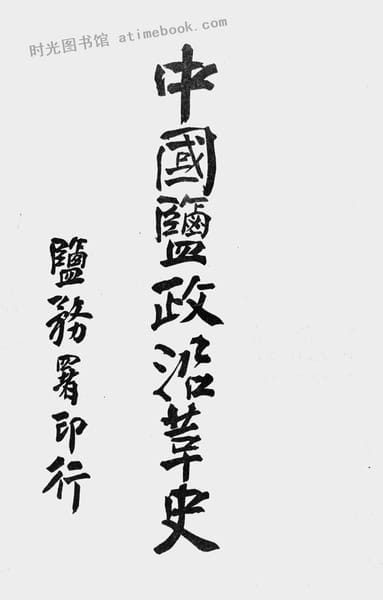 时光图书馆 atimebook.com
中國鹽政沿革史
鹽務署印行